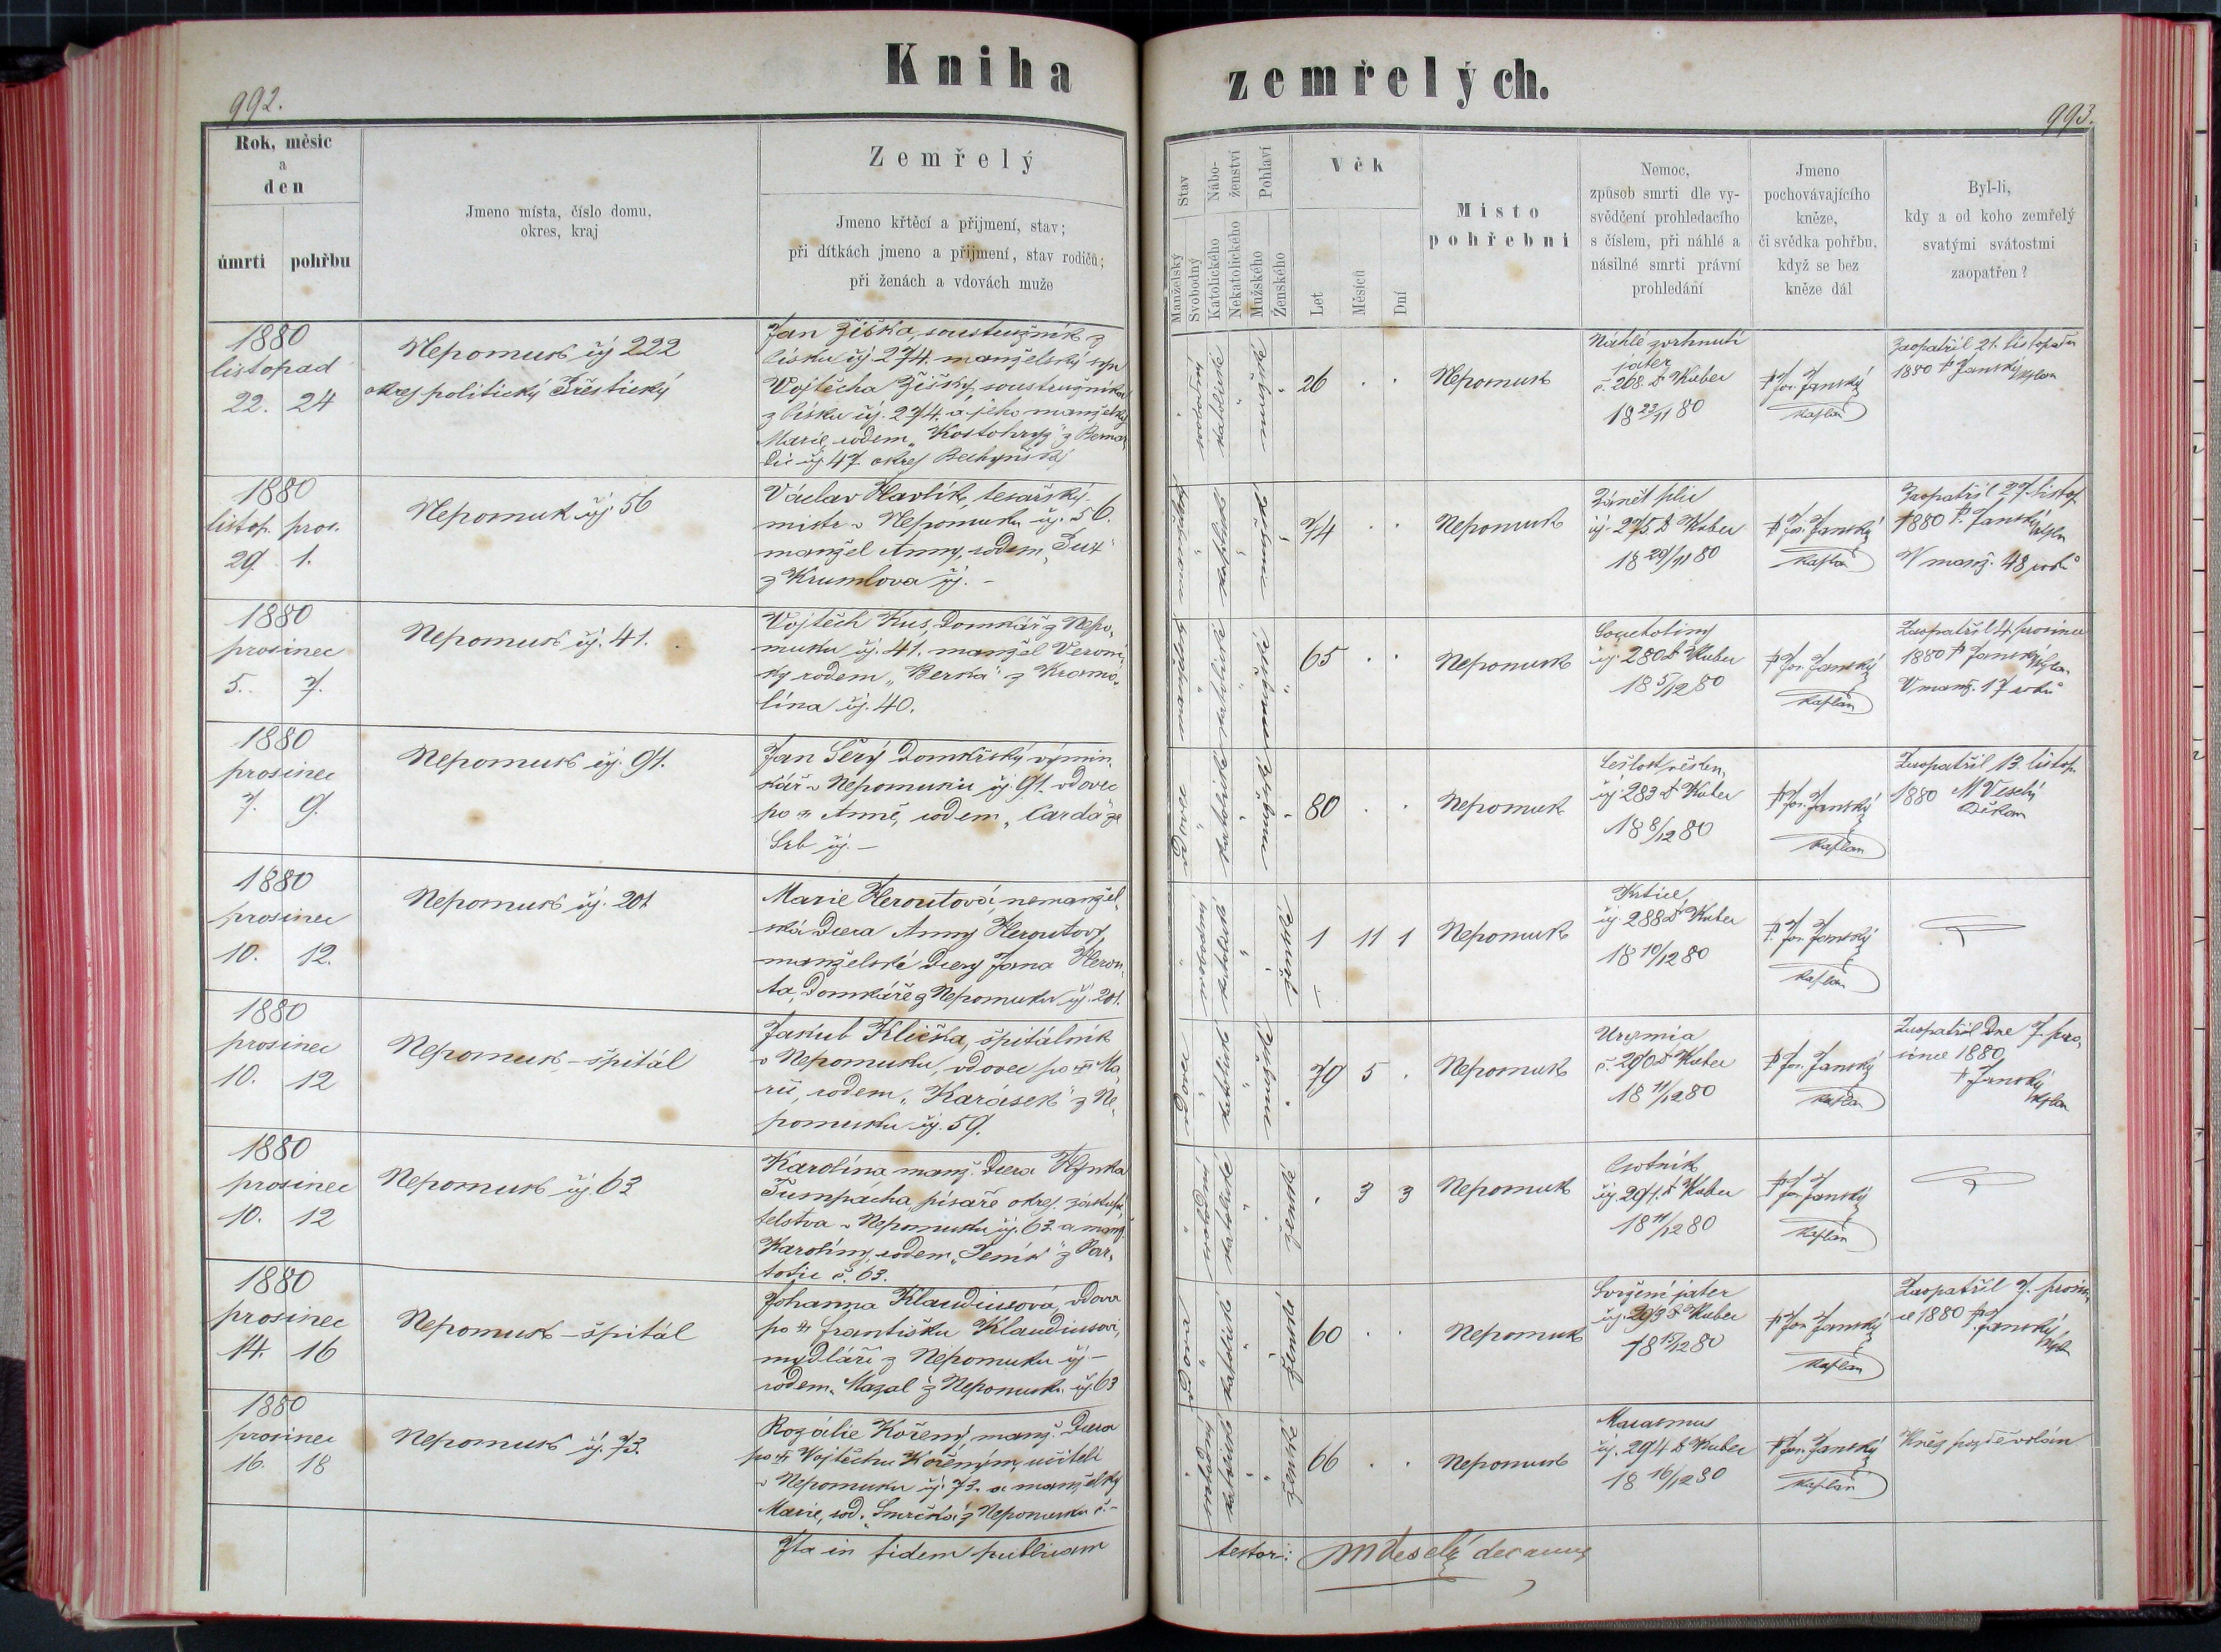 992.
Kniha
Rok, měsíc
a
den
úmrtí pohřbu
Jmeno místa, číslo domu,
okres, kraj
Zemřelý
Jmeno křtěcí a přijmení, stav;
při dítkách jmeno a přijmení, stav rodičů;
při ženách a vdovách muže
1880
listopad
22. 24
Nepomuk čj 222
okres politický Přeštický
Jan Žiška, soustružník z
Písku čj. 274. manželský syn
Vojtěcha Žišky, soustružníka
z Písku čj. 274. a jeho manželky
Marie, rodem "Kostohryz" z Bernar
tic čj 47. okres Bechyňský
1880
listop. pros.
29. 1.
Nepomuk čj. 56
Václav Havlík, tesařský
mistr v Nepomuku čj. 56.
manžel Anny, rodem
z Krumlova čj. -
1880
prosinec
5. 7.
Nepomuk čj. 41.
Vojtěch Kus, domkář z Nepo,
muku čj. 41. manžel Veroni,
ky rodem "Berka" z Kramo,
lína čj. 40.
1880
prosinec
7. 9.
Nepomuk čj. 91.
Jan Šerý domkářský výmin,
kář v Nepomuku čj. 91. vdovec
po Anně, rodem "Carda" ze
Srb čj. -
1880
prosinec
10. 12.
Nepomuk čj. 201
Marie Heroutová, nemanžel,
ská dcera Anny Heroutovy
manželské dcery Jana Herou,
ta, domkáře z Nepomuku čj. 201.
1880
prosinec
10. 12
Nepomuk - špitál
Jakub Klička, špitálník
v Nepomuku, vdovec po Ma
rii, rodem "Karásek" z Ne,
pomuku čj. 59.
1880
prosinec
10. 12
Nepomuk čj. 63
Karolína manž. dcera Hynka
Tumpácha, písaře okres. zastupi
telstva v Nepomuku čj. 63 a manž.
Karolíny, rodem "Peník" z Par,
totic č. 63.
1880
prosinec
14. 16
Nepomuk - špitál
Johanna Klaudiusová, vdova
po Františku Klaudiusovi,
mydláři z Nepomuku čj -
rodem "Mazal" z Nepomuku čj. 63
1880
prosinec
16. 18
Nepomuk čj. 73.
Rozálie Kořený, manž. dcera
po Vojtěchu Kořeným, učiteli
v Nepomuku čj. 73. a manželky
Marie, rod. "Smrčka" z Nepomuku č. -
Ita in fidem publicam
zemřelých.
993.
Stav
Manželský
Svobodný
Náboženství
Katolického
Nekatolického
Pohlaví
Mužského
Ženského
Věk
Let
Měsíců
Dní
Místo
pohřební
Nemoc,
způsob smrti dle vy-
svědčení prohledacího
s číslem, při náhlé a
násilné smrti právní
prohledání
Jmeno
pochovávajícího
kněze,
či svědka pohřbu,
když se bez
kněze dál
Byl-li,
kdy a od koho zemřelý
svatými svátostmi
zaopatřen?
svobodný katolické mužské 26 . . Nepomuk
Náhlé zvrhnutí
jater
č. 268. Dr Kuber
18 23/11 80
P. Jos. Janský
kaplan
Zaopatřil 21. listopadu
1880 P Janský kplan
katolické mužské 74 . . Nepomuk
Zánět plic
čj. 275. Dr Kuber
18 29/11 80
P. Jos. Janský
kaplan
Zaopatřil 27. listop.
1880 P. Janský kpln
V manž. 48 roků
katolické mužské 65 . . Nepomuk
Souchotiny
čj. 280 Dr Kuber
18 5/12 80
P Jos. Janský
kaplan
Zaopatřil 4. prosince
1880 P Janský kplan
V manž. 17 roků
vdovec katolické mužské 80 . . Nepomuk
Sešlost věkem,
čj. 283 Dr Kuber
18 8/12 80
P. Jos. Janský
kaplan
Zaopatřil 13. listop.
1880 M Veselý
Děkan
svobodný katolické ženské 1 11 1 Nepomuk
Krtice,
čj. 288 Dr Kuber
18 10/12 80
P. Jos. Janský
kaplan
vdovec katolické mužské 79 5 . Nepomuk
Urymia
č. 290 Dr Kuber
18 11/12 80
P Jos. Janský
kaplan
Zaopatřil dne 7. pro,
since 1880
P Janský
kplan
svobodný katolické ženské . 3 3 Nepomuk
Psotník
čj. 291. Dr Kuber
18 11/12 80
P Jos. Janský
kaplan
vdova katolické ženské 60 . . Nepomuk
jater
čj. 293 Dr Kuber
18 15/12 80
P Jos Janský
kaplan
Zaopatřil 7. prosin,
ce 1880 P. Janský
kpln
svobodný katolické ženské 66 . . Nepomuk
Marasmus
čj. 294 Dr Kuber
18 16/12 80
P Jos. Janský
kaplan
Kněz pozdě volán
testor: M Veselý decanus